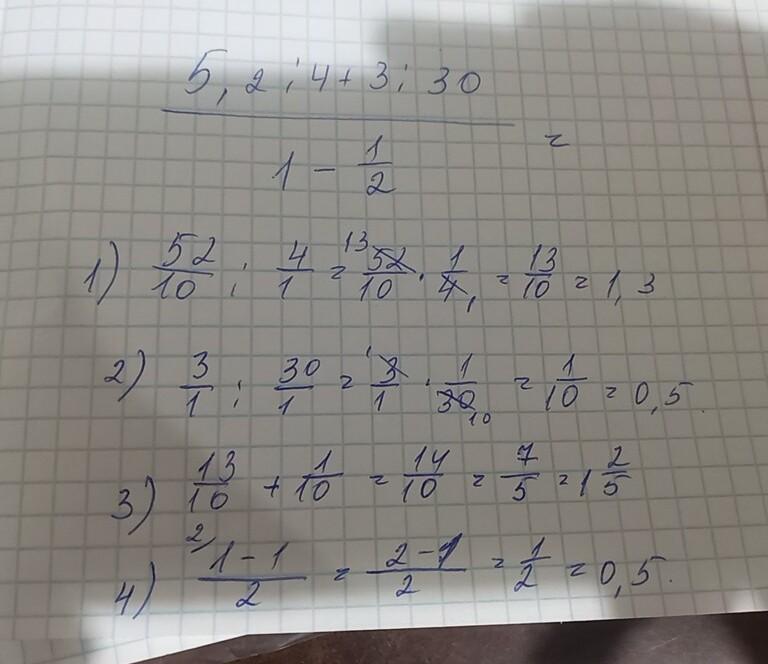 5,2 : 4 + 3 : 30
=
1 - 1/2
1) 52/10 : 4/1 = 13 52/10 · 1/4 1 = 13/10 = 1,3
2) 3/1 : 30/1 = 1 3/1 · 1/30 10 = 1/10 = 0,5.
3) 13/10 + 1/10 = 14/10 = 7/5 = 1 2/5
4) 2/ 1-1/2 = 2-1/2 = 1/2 = 0,5.